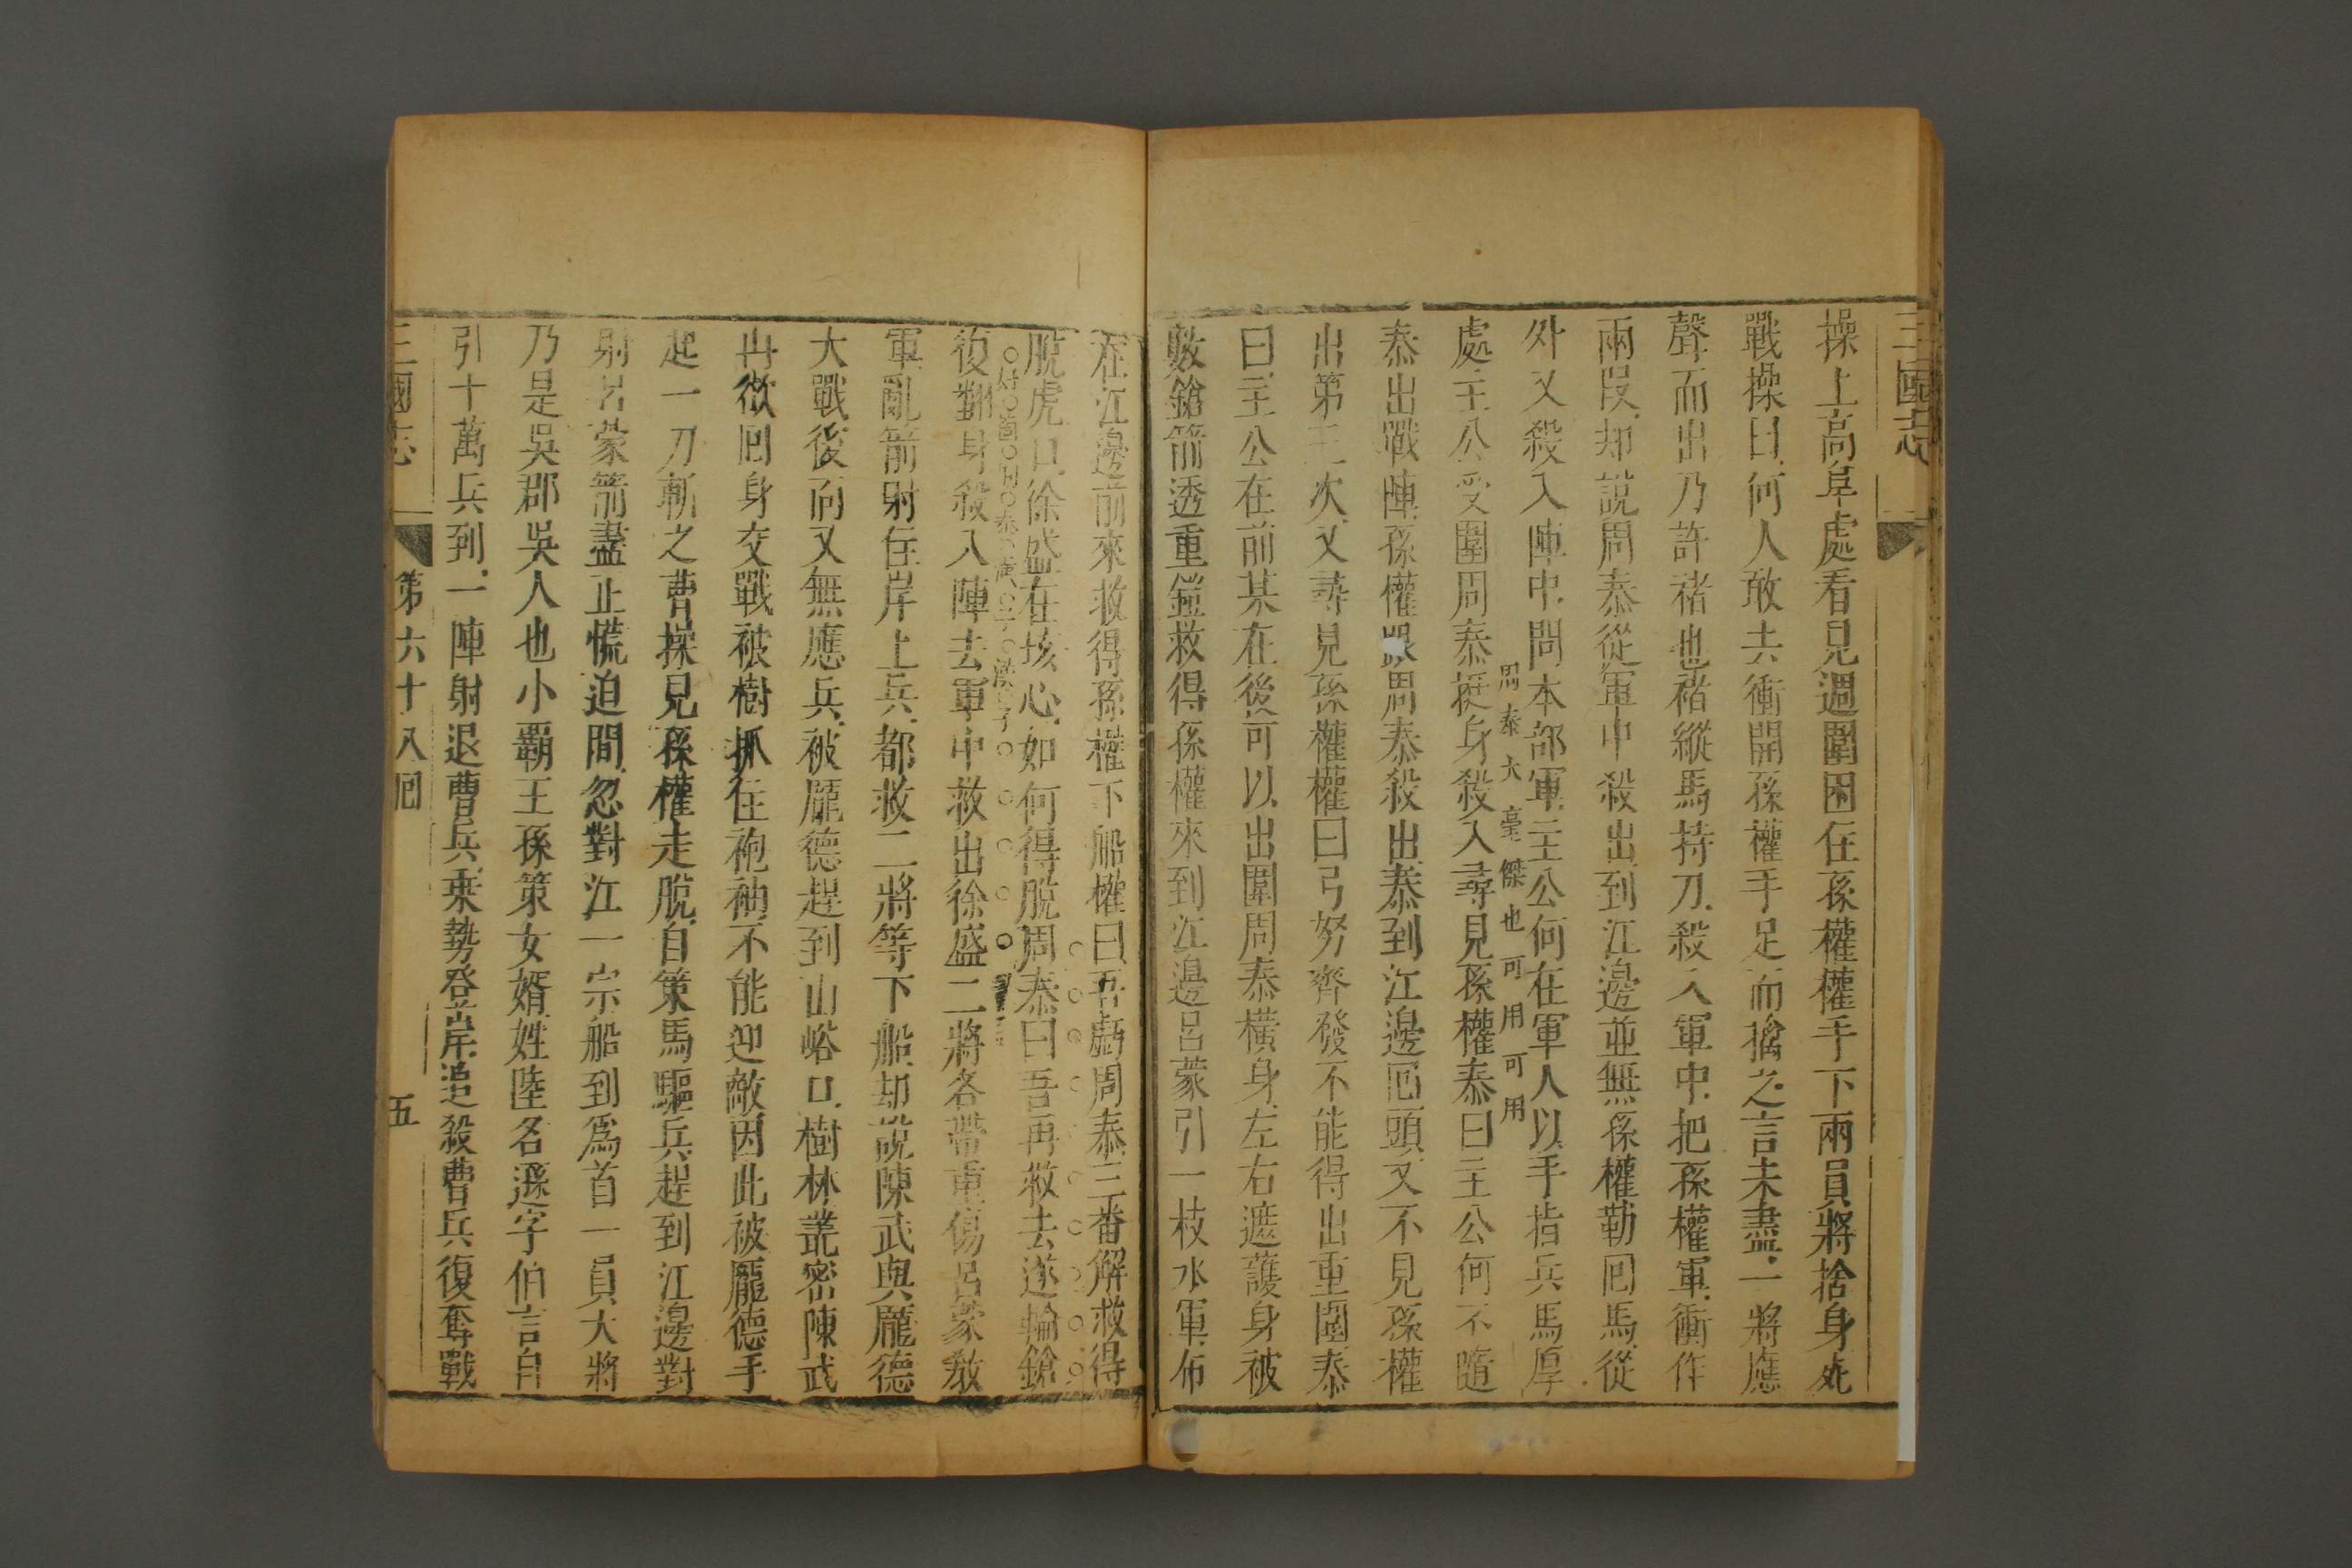 三國志
操上高阜處看見週圍困住孫權權手下兩員將捨身死
戰操曰何人敢去衝開孫權手足而擒之言未盡一將應
聲而出乃許禇也禇縱馬持刀殺入軍中把孫權軍衝作
兩段却說周泰從軍中殺出到江邊並無孫權勒囘馬從
外又殺入陣中問本部軍主公何在軍人以手指兵馬厚
周泰大毫傑也可用可用
處主公受圍周泰挺身殺入尋見孫權泰曰主公何不隨
泰出戰陣孫權跟周泰殺出泰到江邊囘頭又不見孫權
出第三次又尋見孫權權曰弓努齊發不能得出重圍泰
曰主公在前某在後可以出圍周泰橫身左右遮護身被
數鎗箭透重鎧救得孫權來到江邊呂蒙引一枝水軍布
在江邊前來救得孫權下船權曰吾虧周泰三番解救得
脫虎口徐盛在垓心如何得脫周泰曰吾再救去遂輪鎗
復翻身殺入陣去軍中救出徐盛二將各帶重傷呂蒙教
軍亂箭射住岸上兵都救二將等下船却說陳武與龐德
大戰後面又無應兵被龐德趕到山峪口樹林叢密陳武
再欲囘身交戰被樹抓住袍袖不能迎敵因此被龐德手
起一刀斬之曹操見孫權走脫自策馬驅兵趕到江邊對
射呂蒙箭盡止慌迫間忽對江一宗船到爲首一員大將
乃是吳郡吳人也小覇王孫策女婿姓陸名遜字伯言自
引十萬兵到一陣射退曹兵乘勢登岸追殺曹兵復奪戰
三國志 第六十八囘 五